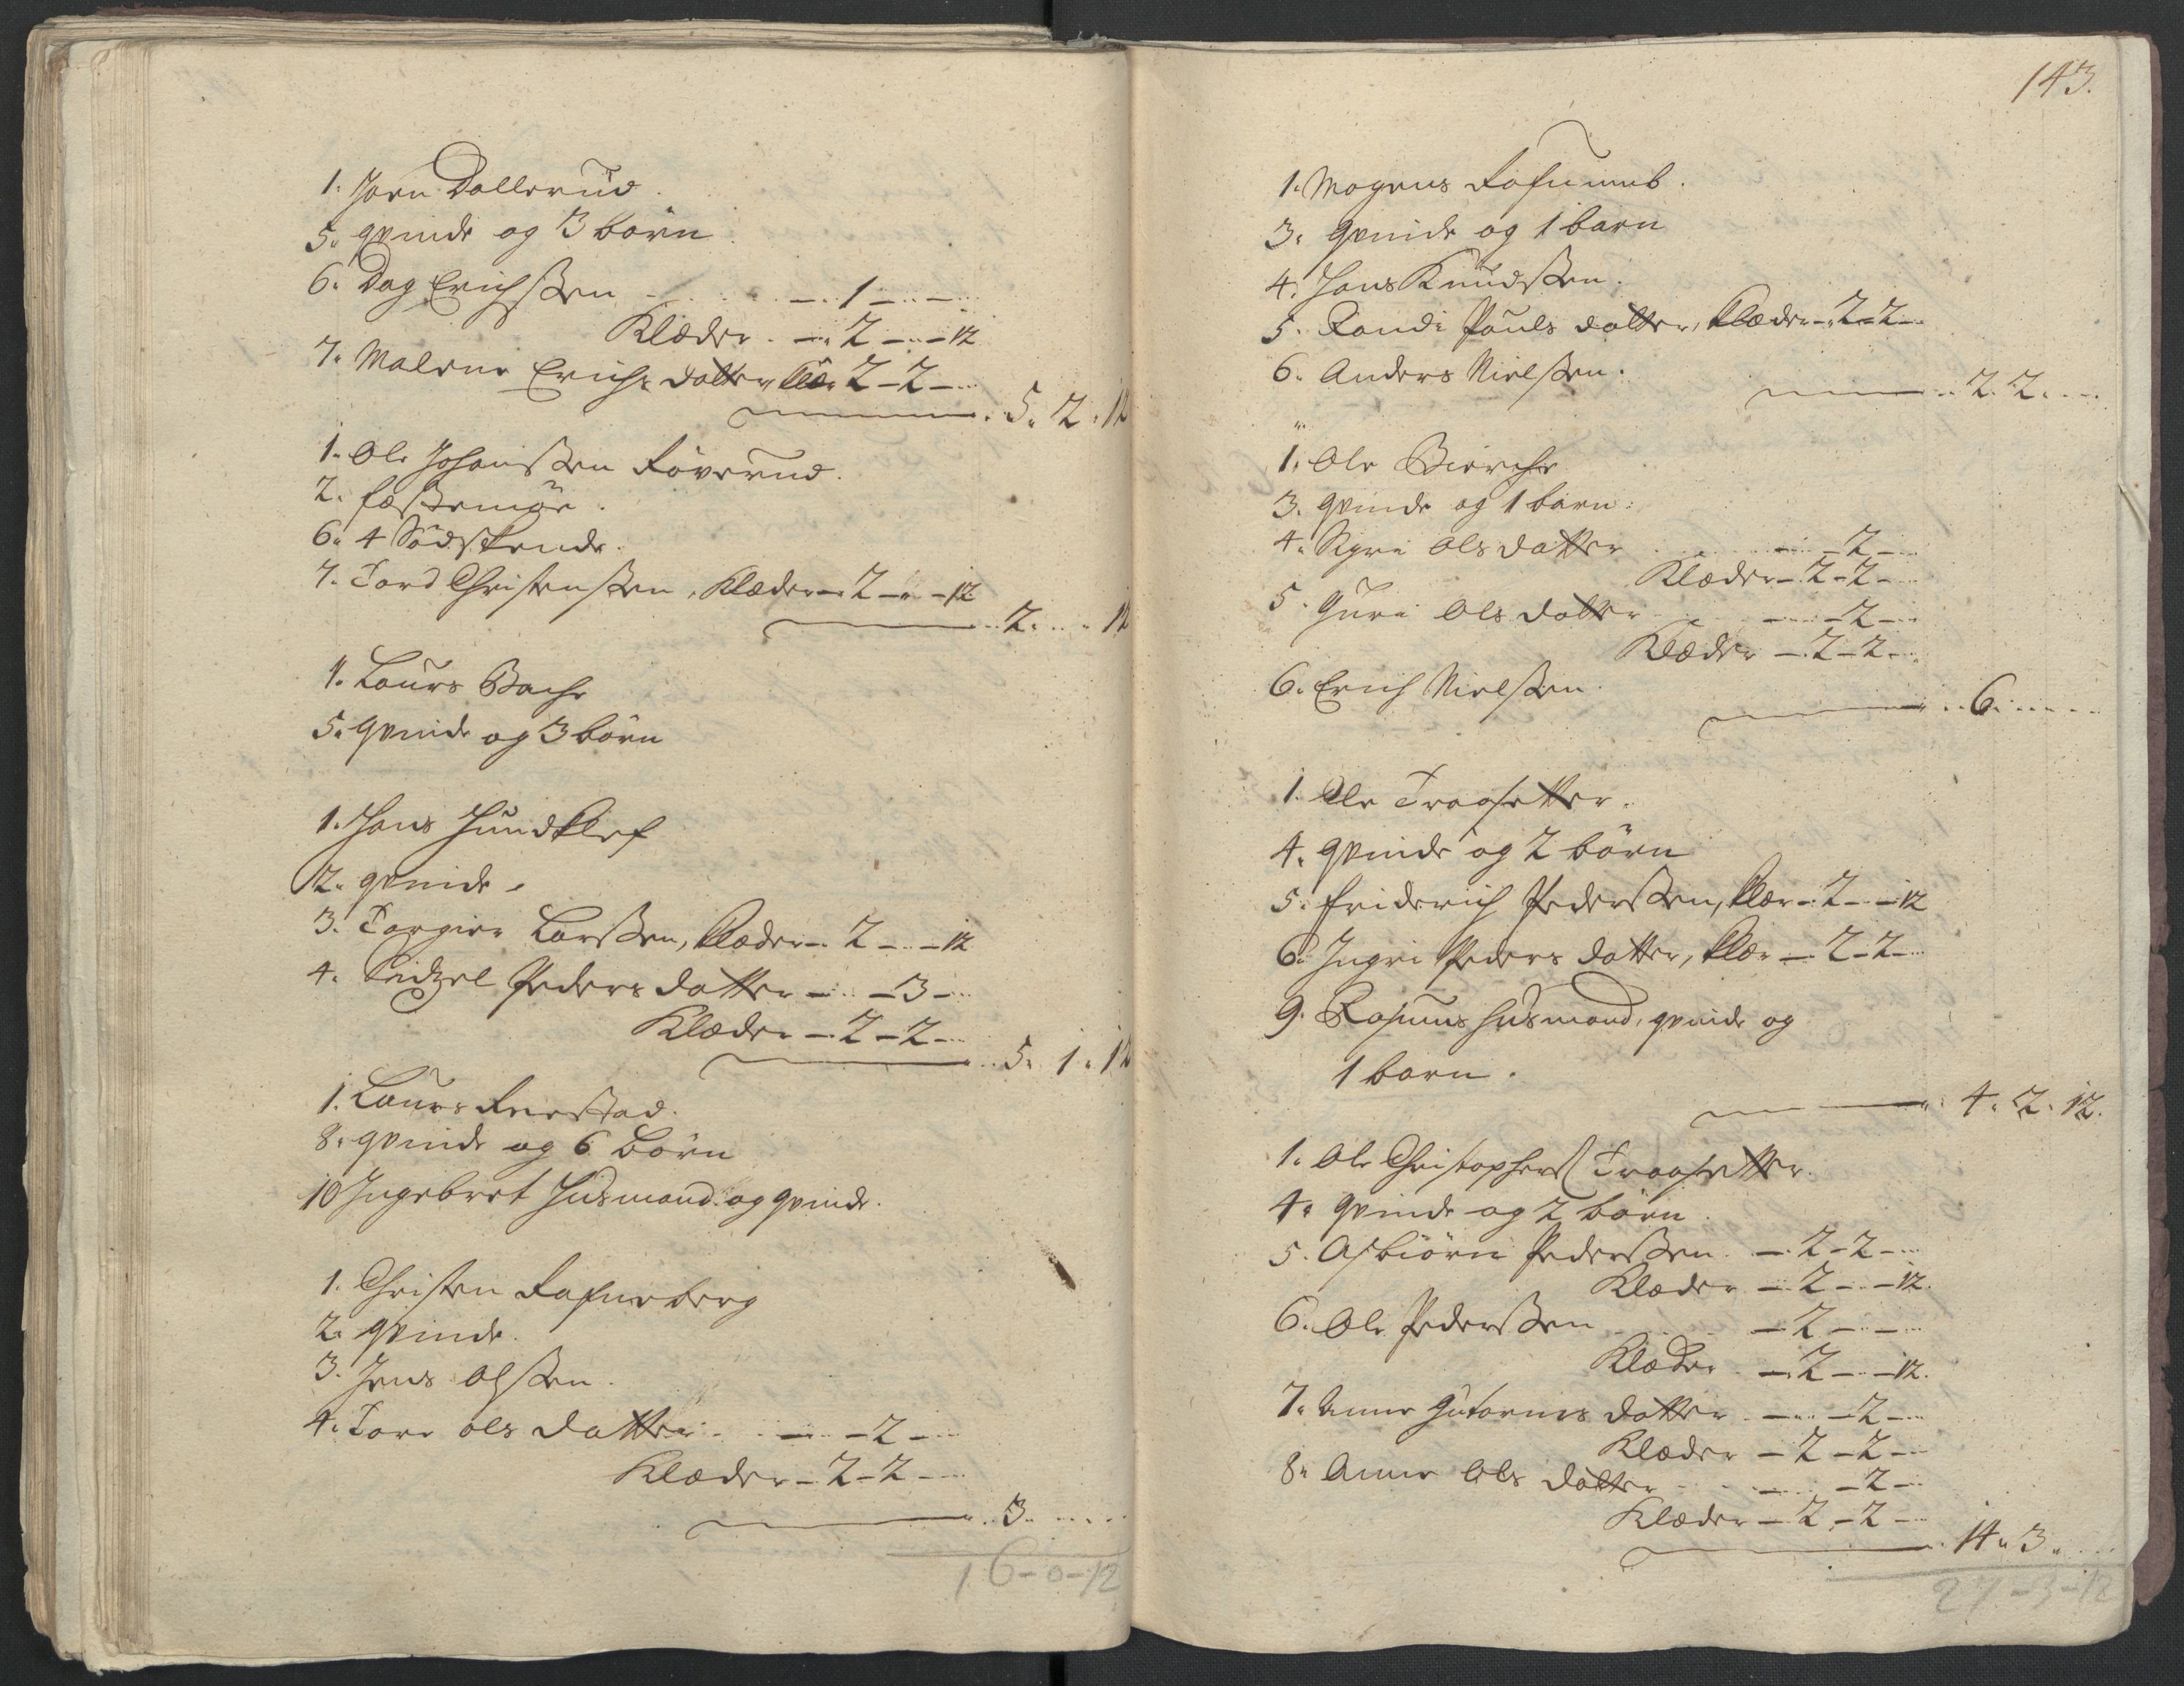 1. Jörn Dallerud.
5. qvinde og 3 börn.
6. Dag Erichssen - - 1 - - -
Klæder - 2 - - 12
7. Malene Erichs datter klær 2 - 2 -
5. 2. 12
1. Ole Johanssen Röverud.
2. fæstemöe.
6. 4 Södskende.
7. Tord Christenssen, Klæder - 2 - - 12
2. - 12
1. Laurs Bache
5. qvinde og 3 börn
1. Hans Hundklef
2. qvinde.
3. Torgier Larssen, klæder - 2 - - 12
4. Sidzel Peders datter - - 3 -
Klæder - 2 - 2 -
5. 1. 12
1. Laurs
8. qvinde og 6 börn
10 Ingebret Husmand og qvinde.
1. Christen
2. qvinde.
3. Jens Olssen.
4. Tore Ols datter - - 2 -
Klæder - 2 - 2 -
3.
16-0-12
143.
1. Mogens
3. qvinde og 1 barn
4. Hans Knudssen.
5. Randi Pouls datter, klæder - 2 - 2 -
6. Anders Nielssen.
2. 2.
1. Ole Bierche
3. qvinde og 1 barn.
4. Sigri Ols datter - - 2 -
Klæder - 2 - 2 -
5. Guri Ols datter - - 2 -
Klæder - 2 - 2 -
6. Erich Nielssen.
6.
1. Ole Traasetter.
4. qvinde og 2 börn
5. Friderich Pederssen, klær - 2 - - 12
6. Ingri Peders datter, klær - 2 - 2 -
9. Rasmus husmand, qvinde og
1 barn.
4. 2. 12.
1. Ole Christophers Traasetter.
4. qvinde og 2 börn.
5. Asbiörn Pederssen - 2 - 2 -
Klæder - 2 - - 12.
6. Ole Pederssen - 2 - -
Klæder - 2 - - 12.
7. Anne Gutorms datter - - 2 -
Klæder - 2 - 2 -
8. Anne Ols datter - - 2 -
Klæder - 2 - 2 -
14. 3.
27-3-12